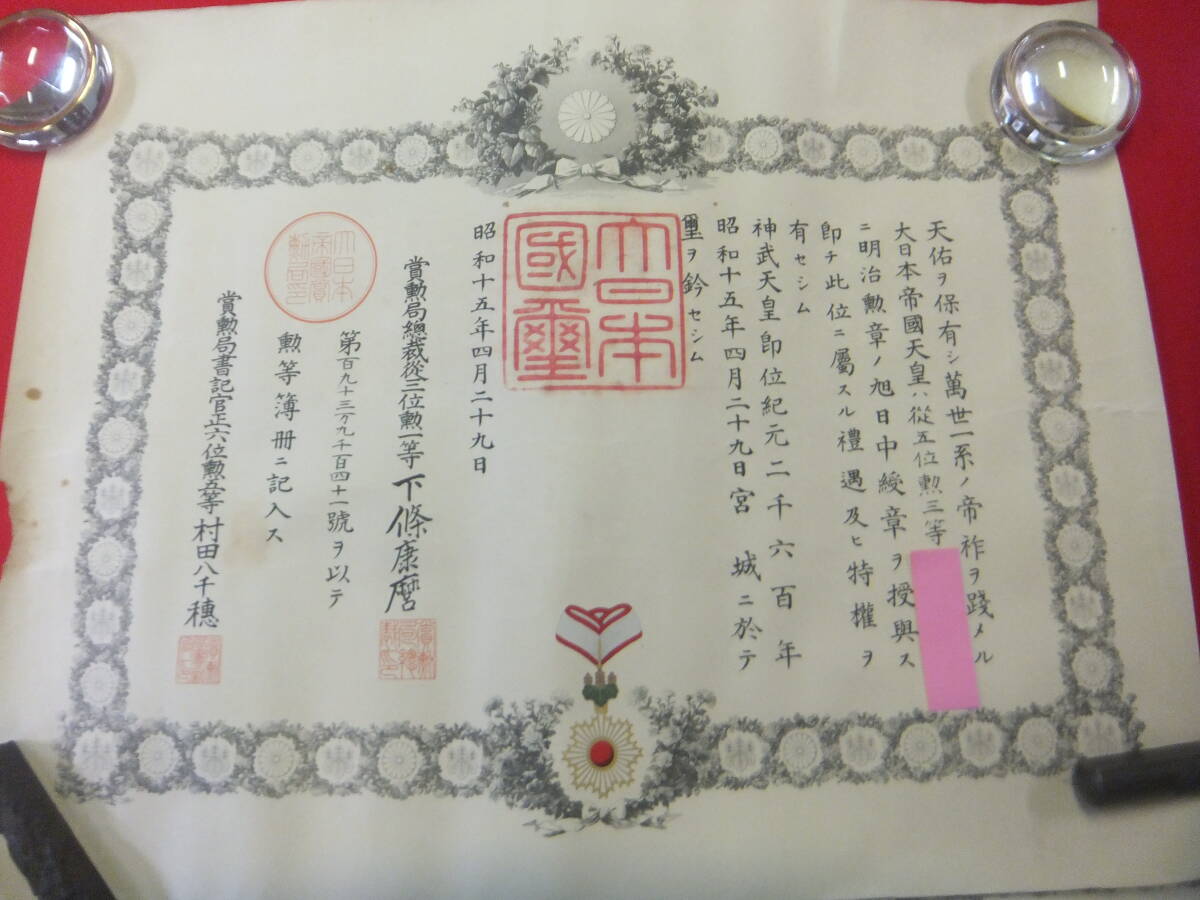 天佑ヲ保有シ萬世一系ノ帝祚ヲ踐メル
大日本帝國天皇ハ從五位勲三等
ニ明治勲章ノ旭日中綬章ヲ授與ス
卽チ此位ニ屬スル禮遇及ヒ特權ヲ
有セシム
神武天皇卽位紀元二千六百年
昭和十五年四月二十九日宮城ニ於テ
璽ヲ鈐セシム
大日本
國璽
昭和十五年四月二十九日
賞勲局總裁從三位勲一等下條康麿
第百九十三万九千百四十一號ヲ以テ
勲等簿册ニ記入ス
大日本
帝國賞
勲局印
賞勲局書記官正六位勲五等村田八千穗